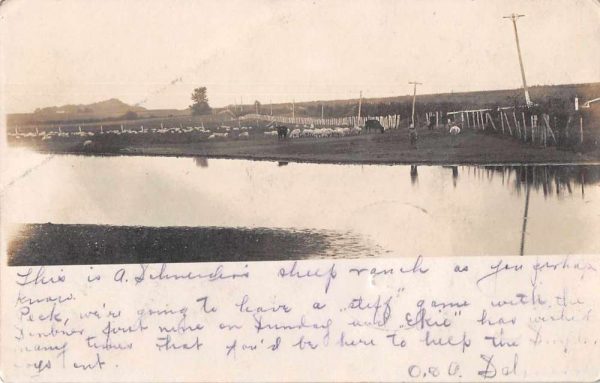 This is A. Schneider's sheep ranch as you perhaps
know.
Peck, we're going to have a "stiff" game with the
first nine on Sunday and "Ikie" has wished
many times that you'd be here to help the
out. O. & O.